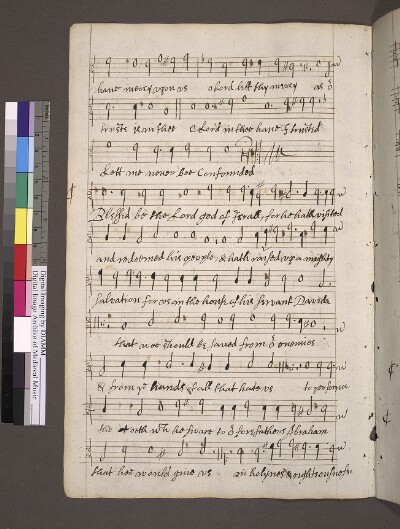 haue mercy vpon vs o Lord lett thy mercy as
truste is in thee O Lord in thee haue I trusted
Lett me neuer bee Confounded
Blessed be the Lord god of Israll, for he hath visited
and redeemed his people & hath raised vp a mighty
Salvation for vs in the house of his servant Davide
that wee should be saved from enemies
& from ye hands of all that hate vs to performe
the to forefathers Abraham
that hee would giue vs in holynes &
Digital Imaging by DIAMM
Digital Image Archive of Medieval Music